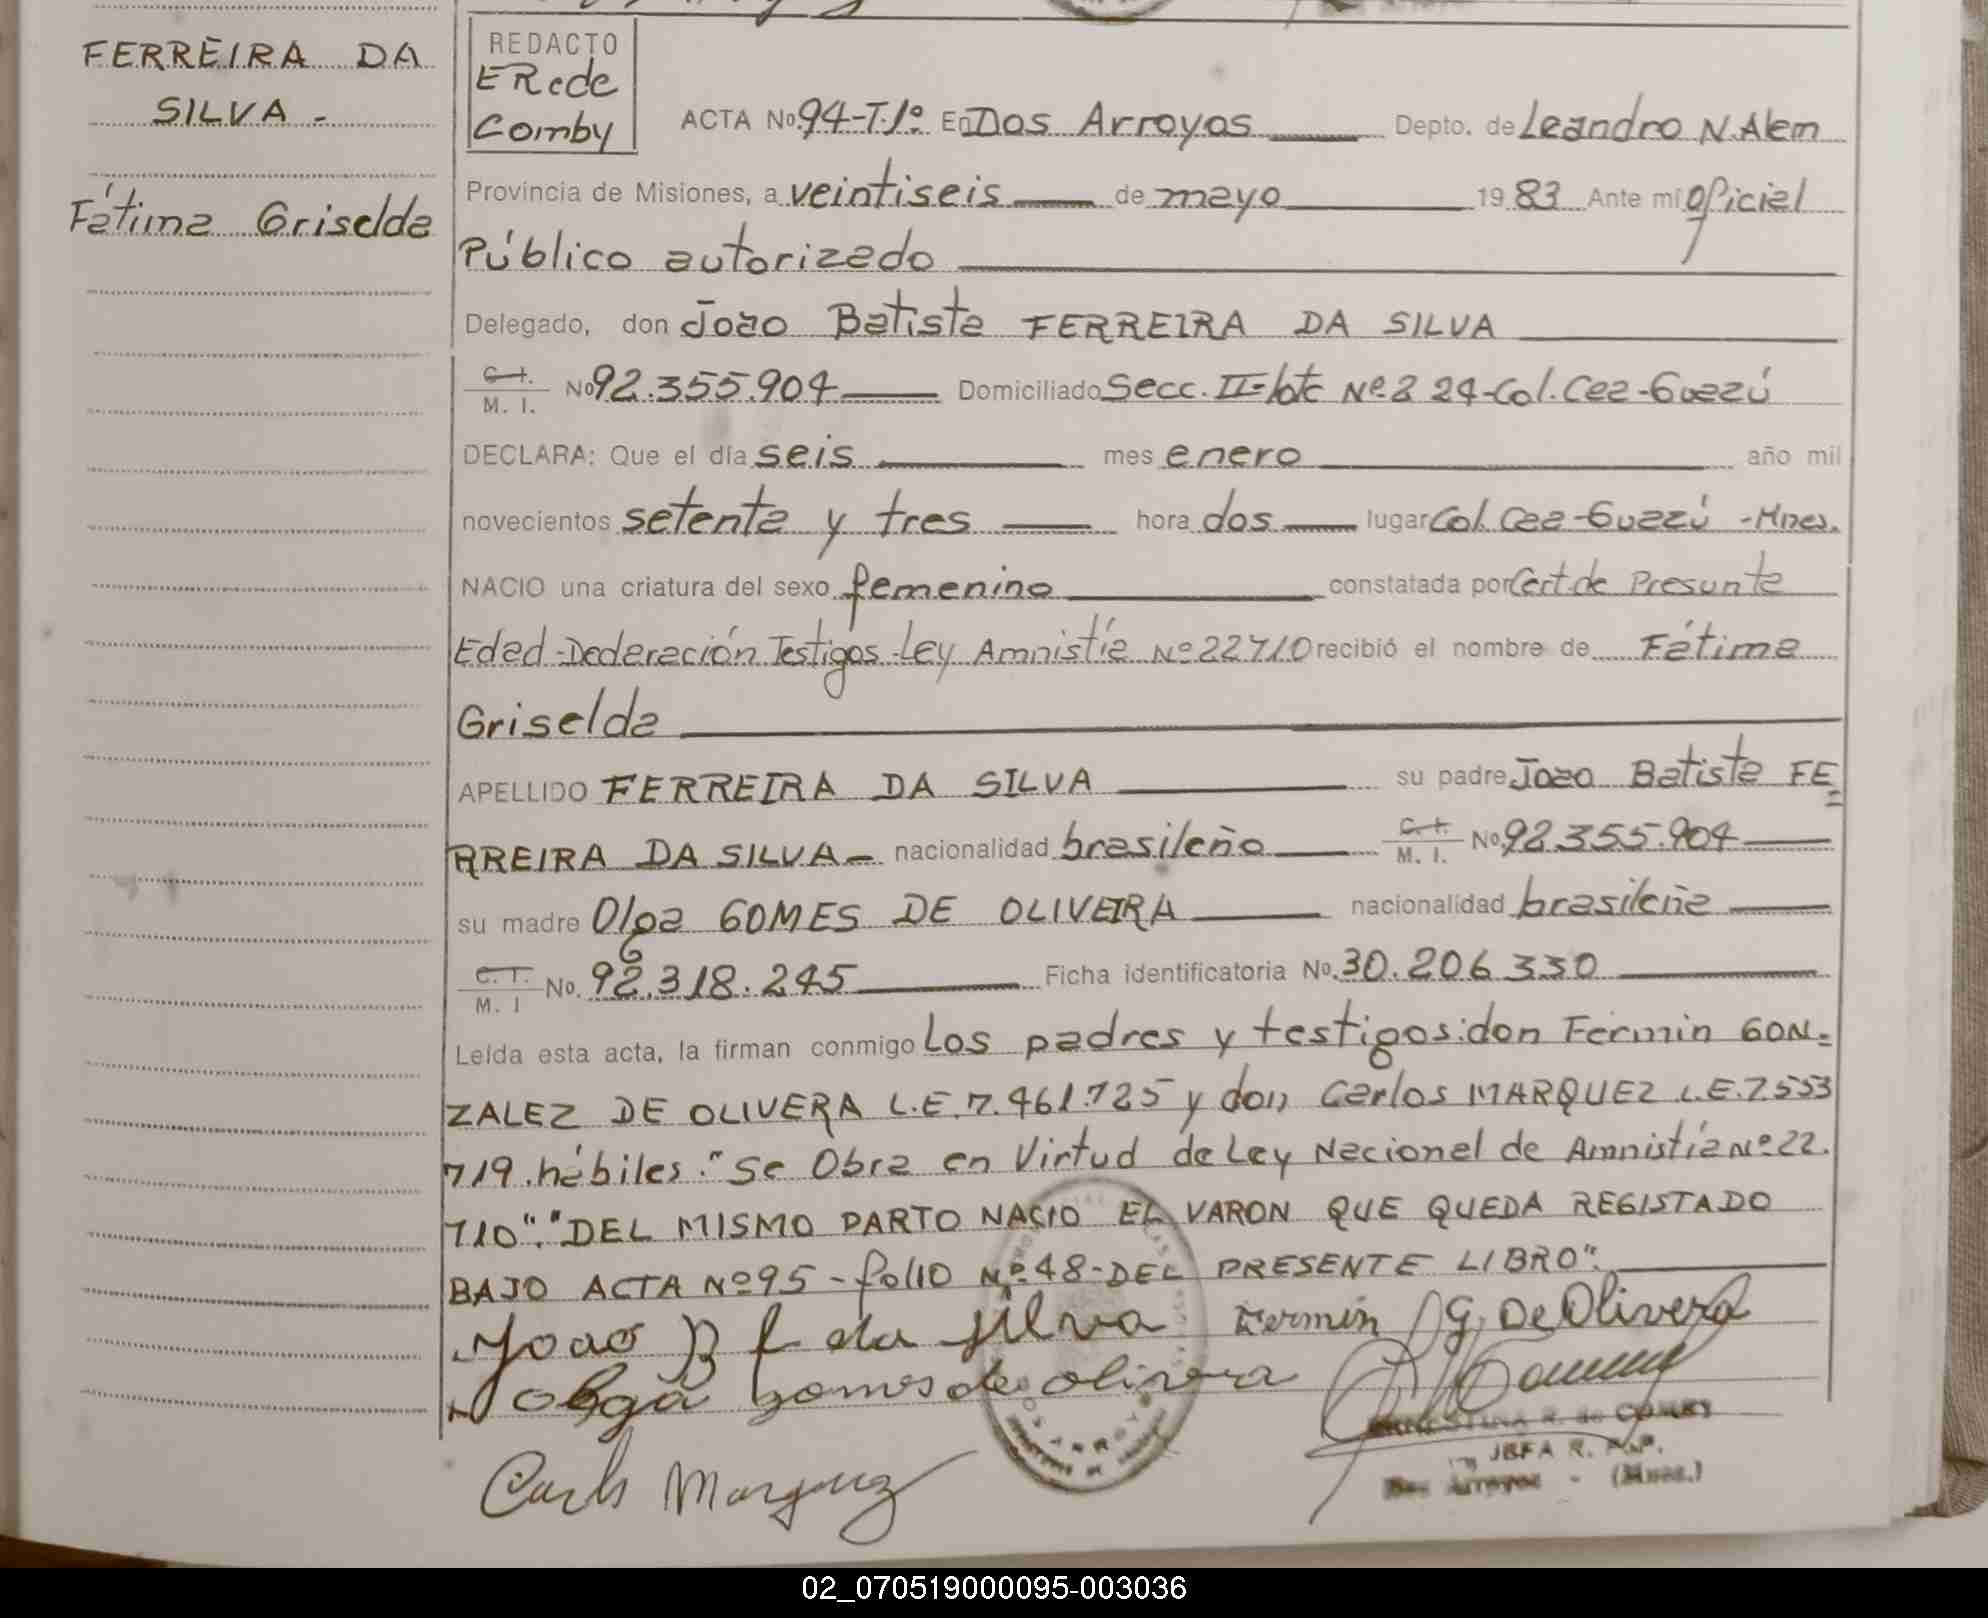 FERREIRA DA
SILVA -
Fátima Griselda
REDACTO
E R. de
Comby
ACTA No. 94-T.1º En Dos Arroyos Depto. de Leandro N. Alem
Provincia de Misiones, a veintiseis de mayo 19 83 Ante mí Oficial
Público autorizado
Delegado, don Joao Batista FERREIRA DA SILVA
C. I. M. I. No 92.355.904 Domiciliado Secc. II-lote Nº 224-Col. Caa-Guazú
DECLARA: Que el día seis mes enero año mil
novecientos setenta y tres hora dos lugar Col. Caa-Guazú -Mnes.
NACIO una criatura del sexo femenino constatada por Cert. de Presunta
Edad-Declaración Testigos-Ley Amnistía Nº 22710 recibió el nombre de Fátima
Griselda
APELLIDO FERREIRA DA SILVA su padre Joao Batista FE=
RREIRA DA SILVA- nacionalidad brasileño C. I. M. I. No 92.355.904
su madre Olga GOMES DE OLIVEIRA nacionalidad brasileña
C. I. M. I No. 92.318.245 Ficha identificatoria No. 30.206.330
Leída esta acta, la firman conmigo Los padres y testigos: don Fermin GON=
ZALEZ DE OLIVERA L.E.7.461.725 y don Carlos MARQUEZ L.E.7.553
719. hábiles. "Se Obra en Virtud de Ley Nacional de Amnistía Nº 22.
710". "DEL MISMO PARTO NACIO EL VARON QUE QUEDA REGISTADO
BAJO ACTA Nº 95 - folio Nº 48 - DEL PRESENTE LIBRO".
Joao B F da silva Fermin G. De Olivera
olga gomes de olivera
Carlos Marquez
ERNESTINA R. de COMBY
JEFA R. P.
Dos Arroyos - (Mnes.)
02_070519000095-003036